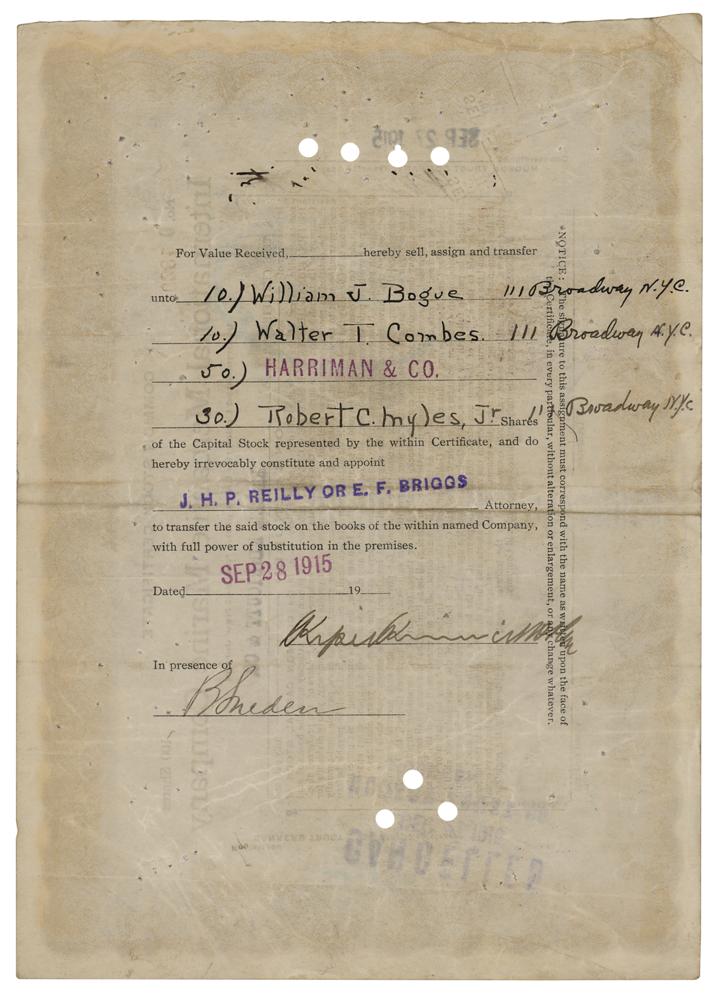 SEP 27 1915
For Value Received, hereby sell, assign and transfer
unto 10.) William J. Bogue 111 Broadway N.Y.C.
10.) Walter T. Combes. 111 Broadway N.Y.C.
50.) HARRIMAN & CO.
30.) Robert C. Myles, Jr. Shares 111 Broadway N.Y.C
of the Capital Stock represented by the within Certificate, and do
hereby irrevocably constitute and appoint
J. H. P. REILLY OR E. F. BRIGGS
Attorney,
to transfer the said stock on the books of the within named Company,
with full power of substitution in the premises.
SEP 28 1915
Dated 19
In presence of
B Sneden
NOTICE: The signature to this assignment must correspond with the name as written upon the face of
the Certificate, in every particular, without alteration or enlargement, or any change whatever.
CANCELLED